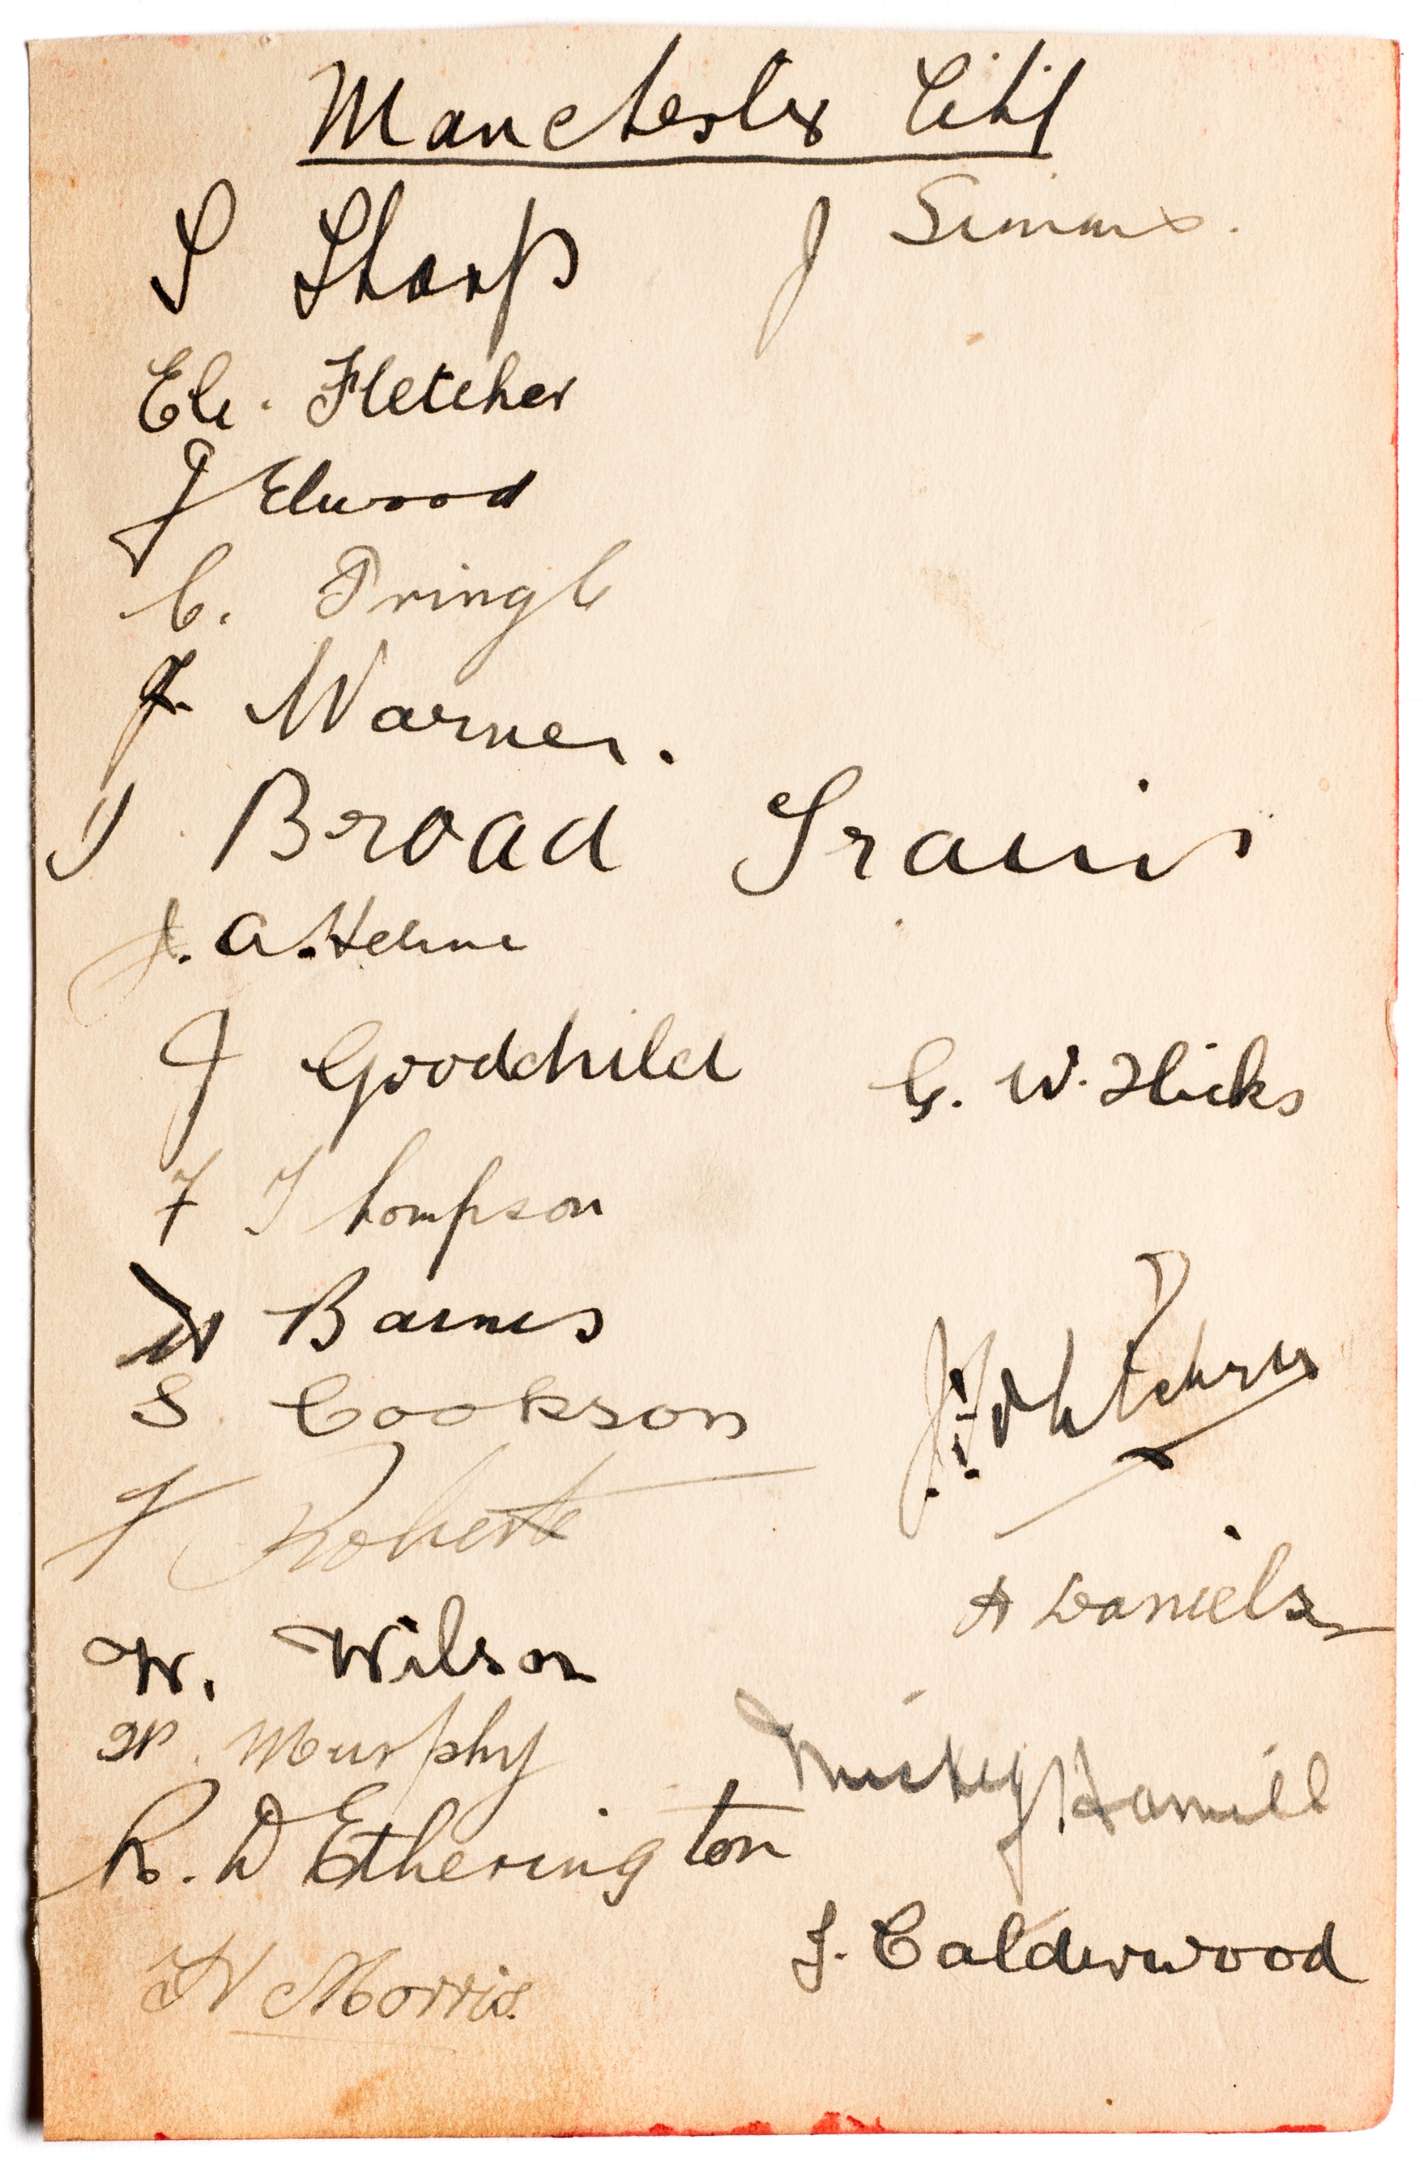 Manchester City
S Sharp
J Simms.
Eli. Fletcher
J Elwood
C. Pringle
J. Warner.
J Broad
Travis
J. A. Helme
J Goodchild
G. W. Hicks
F Thompson
H Barnes
S Cookson
F Roberts
A Daniels
W. Wilson
W. Murphy
Mickey Hamill
R. D Etherington
J. Calderwood
H Morris.